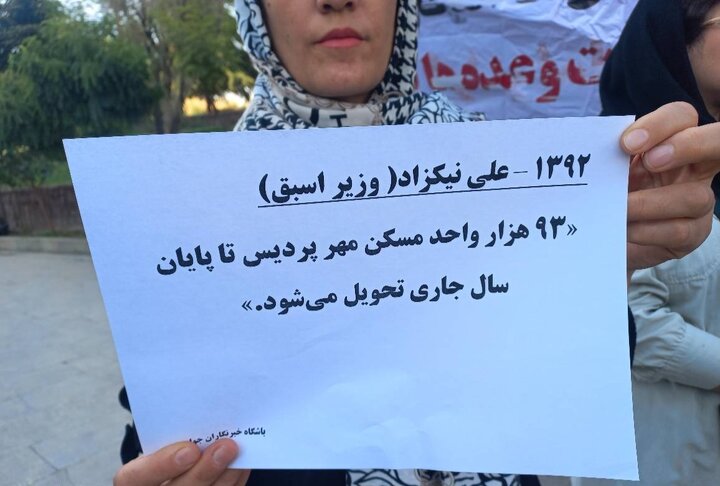 ۱۳۹۲ – علی نیکزاد( وزیر اسبق)
«۹۳ هزار واحد مسکن مهر پردیس تا پایان
سال جاری تحویل می‌شود.»
باشگاه خبرنگاران